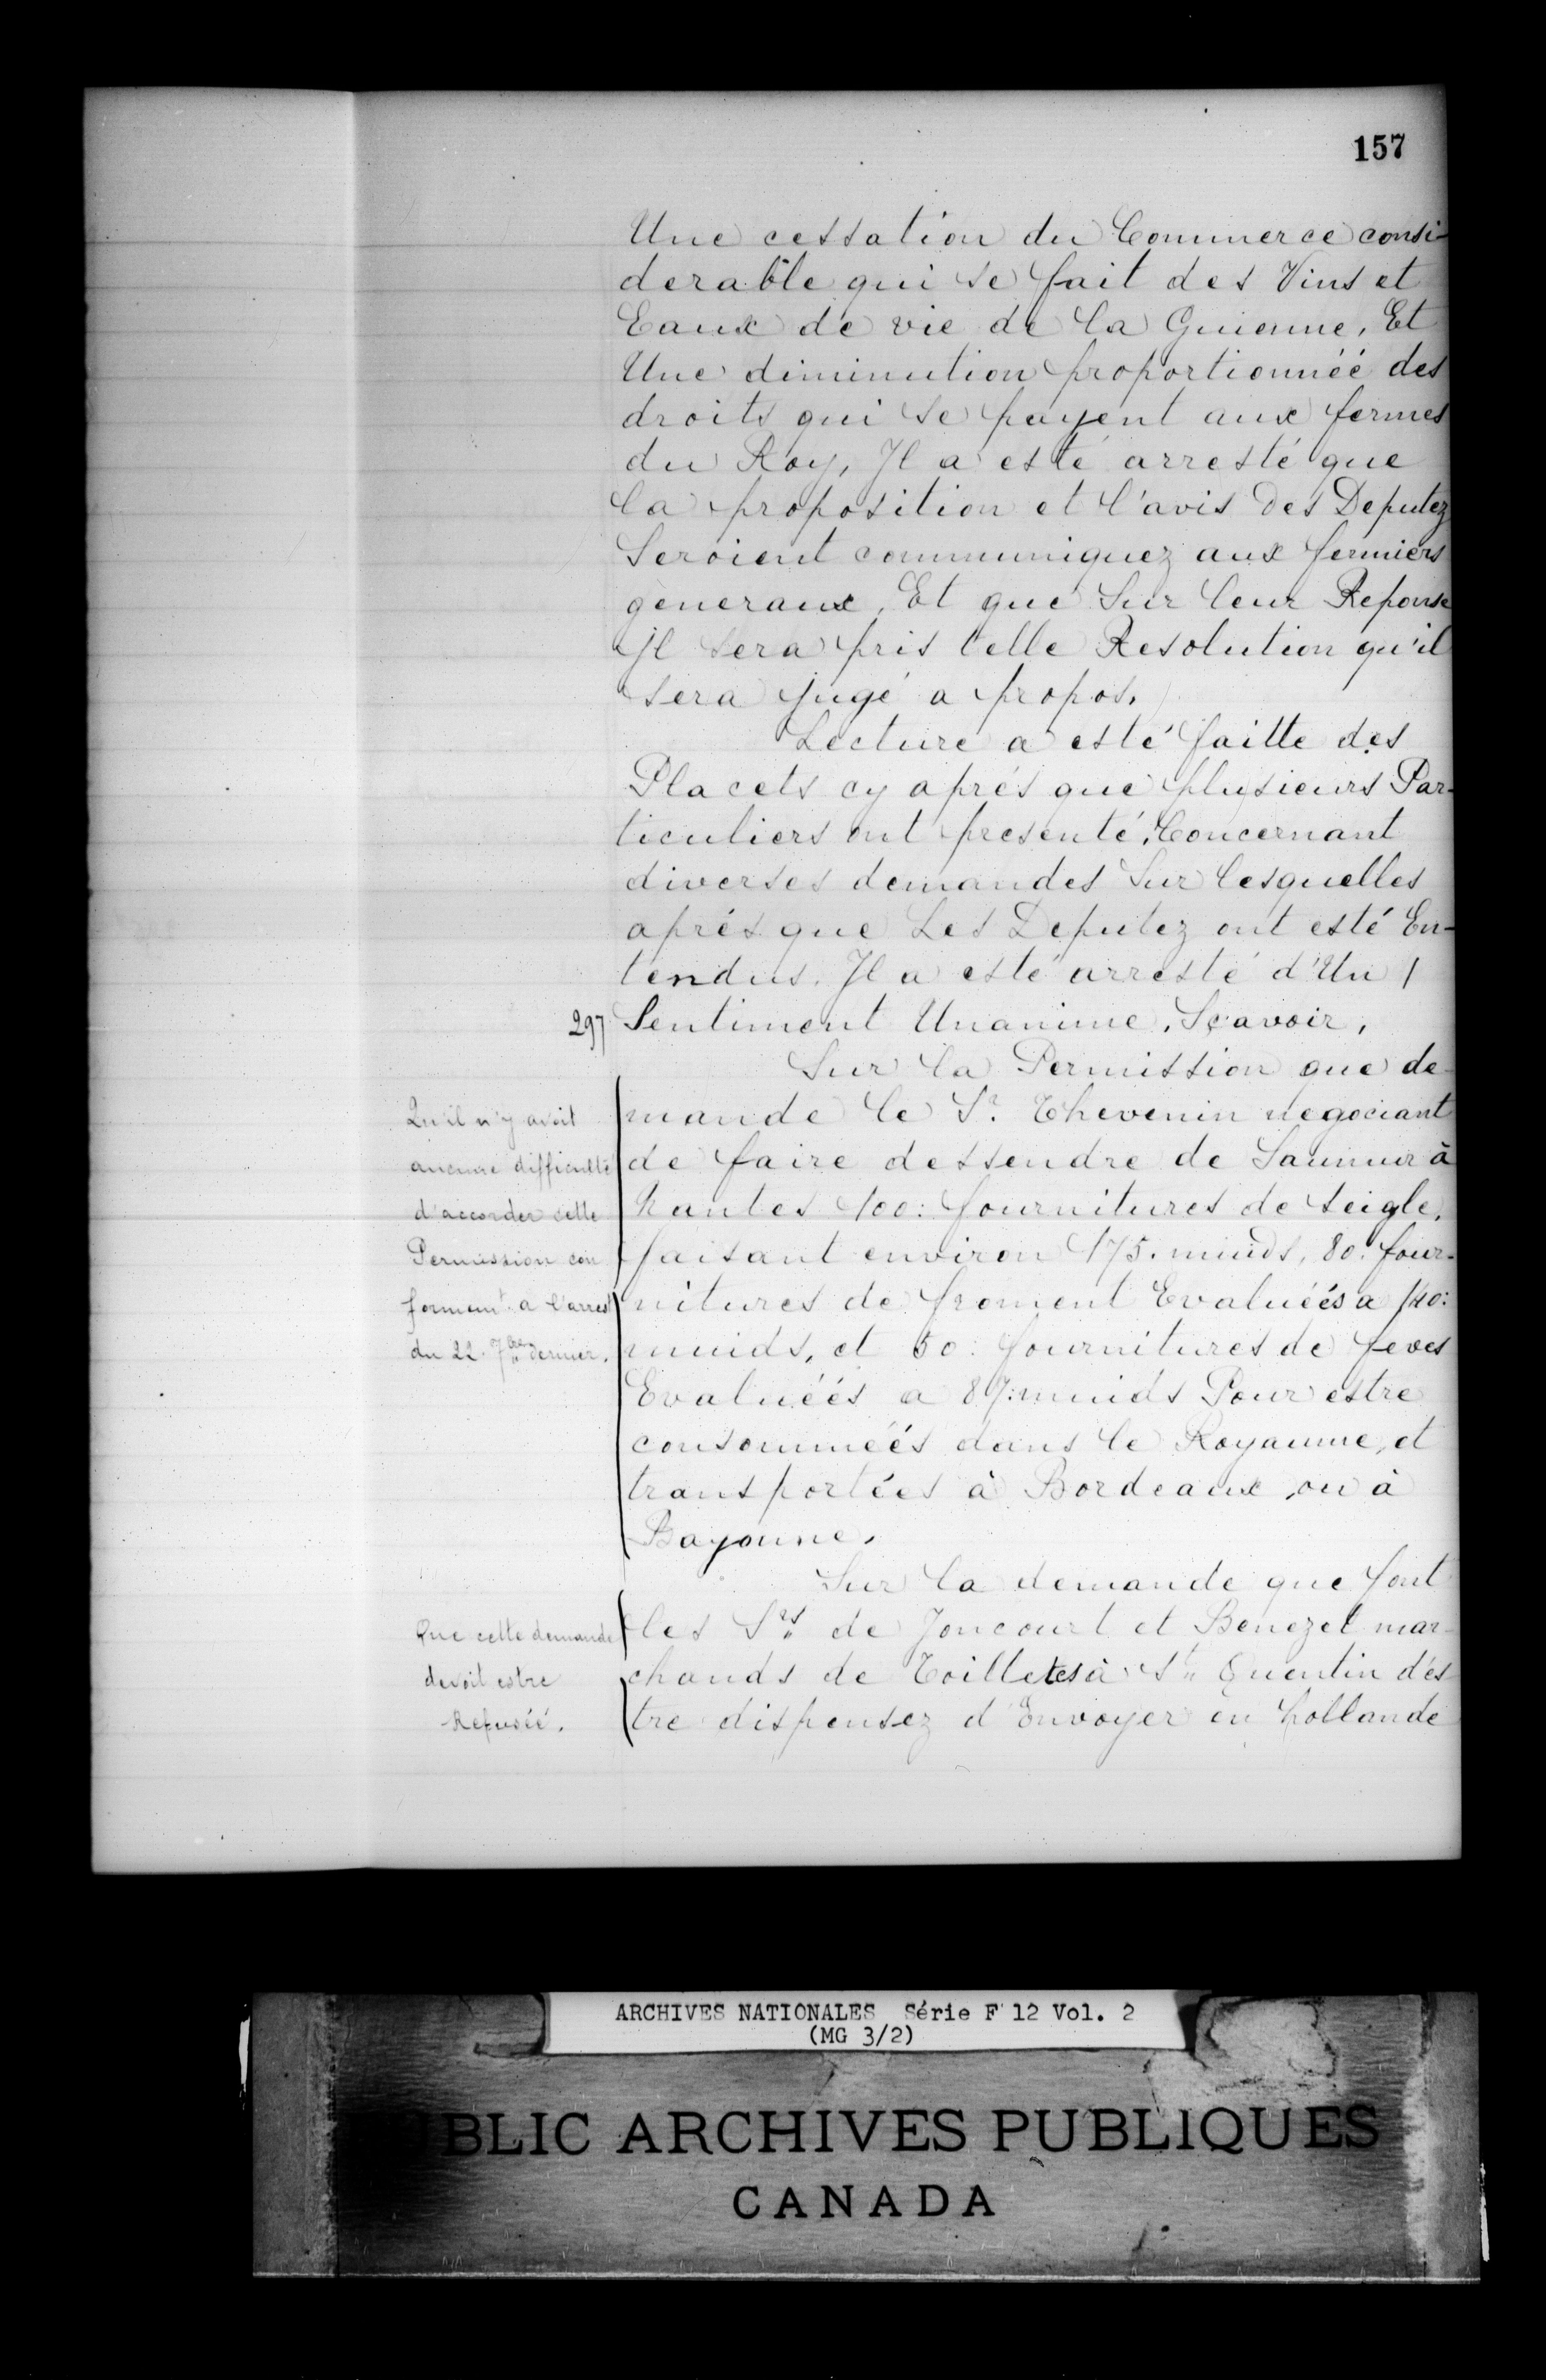 157
Une cessation du Commerce consi-
derable qui se fait des Vins et
Eaux de vie de la Guienne, Et
Une diminution proportionnéé des
droits qui se payent aux fermes
du Roy, Jl a esté arresté que
la proposition et l'avis des Deputez
Seroient communiquez aux fermiers
generaux, Et que Sur leur Reponse
jl sera pris telle Resolution qu'il
sera jugé a propos.
Lecture a esté faitte des
Placets cy aprés que plusieurs Par-
ticuliers ont presenté, Concernant
diverses demandes Sur lesquelles
aprés que Les Deputez ont esté En-
tendus. Jl a esté arresté d'Un /
297 Sentiment Unanime, Sçavoir,
Sur la Permission que de-
mande le Sr. Thevenin negociant
de faire dessendre de Saumur à
Nantes 100: fournitures de seigle,
faisant environ 175. muids, 80: four-
nitures de froment Evaluéés a 140:
muids, et 50: fournitures de feves
Evaluéés a 87: muids Pour estre
consomméés dans le Royaume, et
transportées à Bordeaux, ou à
Bayonne.
Qu'il n'y avoit
aucune difficulté
d'accorder cette
Permission con
formemt. a l'arrest
du 22. 7bre dernier.
Sur la demande que font
les Srs. de Joncourt et Benezet mar-
chands de Toillettes à St. Quentin d'es
tre dispensez d'Envoyer en hollande
Que cette demande
devoit estre
Refuséé.
ARCHIVES NATIONALES Série F 12 Vol. 2
(MG 3/2)
PUBLIC ARCHIVES PUBLIQUES
CANADA